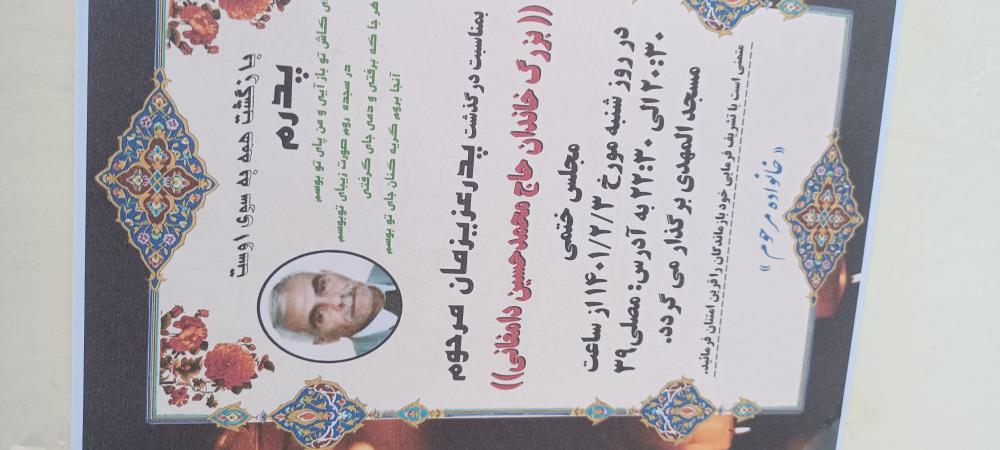 بازگشت همه به سوی اوست
پدرم
ای کاش تو باز آیی و من پای تو بوسم
در سجده روم صورت زیبای توبوسم
هر جا که برفتی و دمی جای گرفتی
آنجا بروم گریه کنان جای تو بوسم
بمناسبت درگذشت پدرعزیزمان مرحوم
((بزرگ خاندان حاج محمدحسین دامغانی))
مجلس ختمی
در روز شنبه مورخ ۱۴۰۱/۲/۳ از ساعت
۲۰:۳۰ الی ۲۲:۳۰ به آدرس: مصلی ۳۹
مسجد المهدی برگذار می گردد.
متمنی است با تشریف فرمایی خود بازماندگان را قرین امتنان فرمائید.
«خانواده مرحوم»